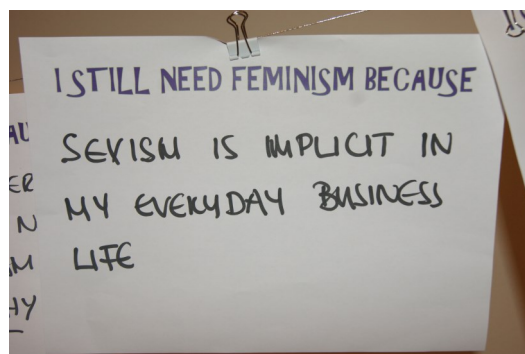 I STILL NEED FEMINISM BECAUSE
SEXISM IS IMPLICIT IN
MY EVERYDAY BUSINESS
LIFE
AU
ER
N
HY